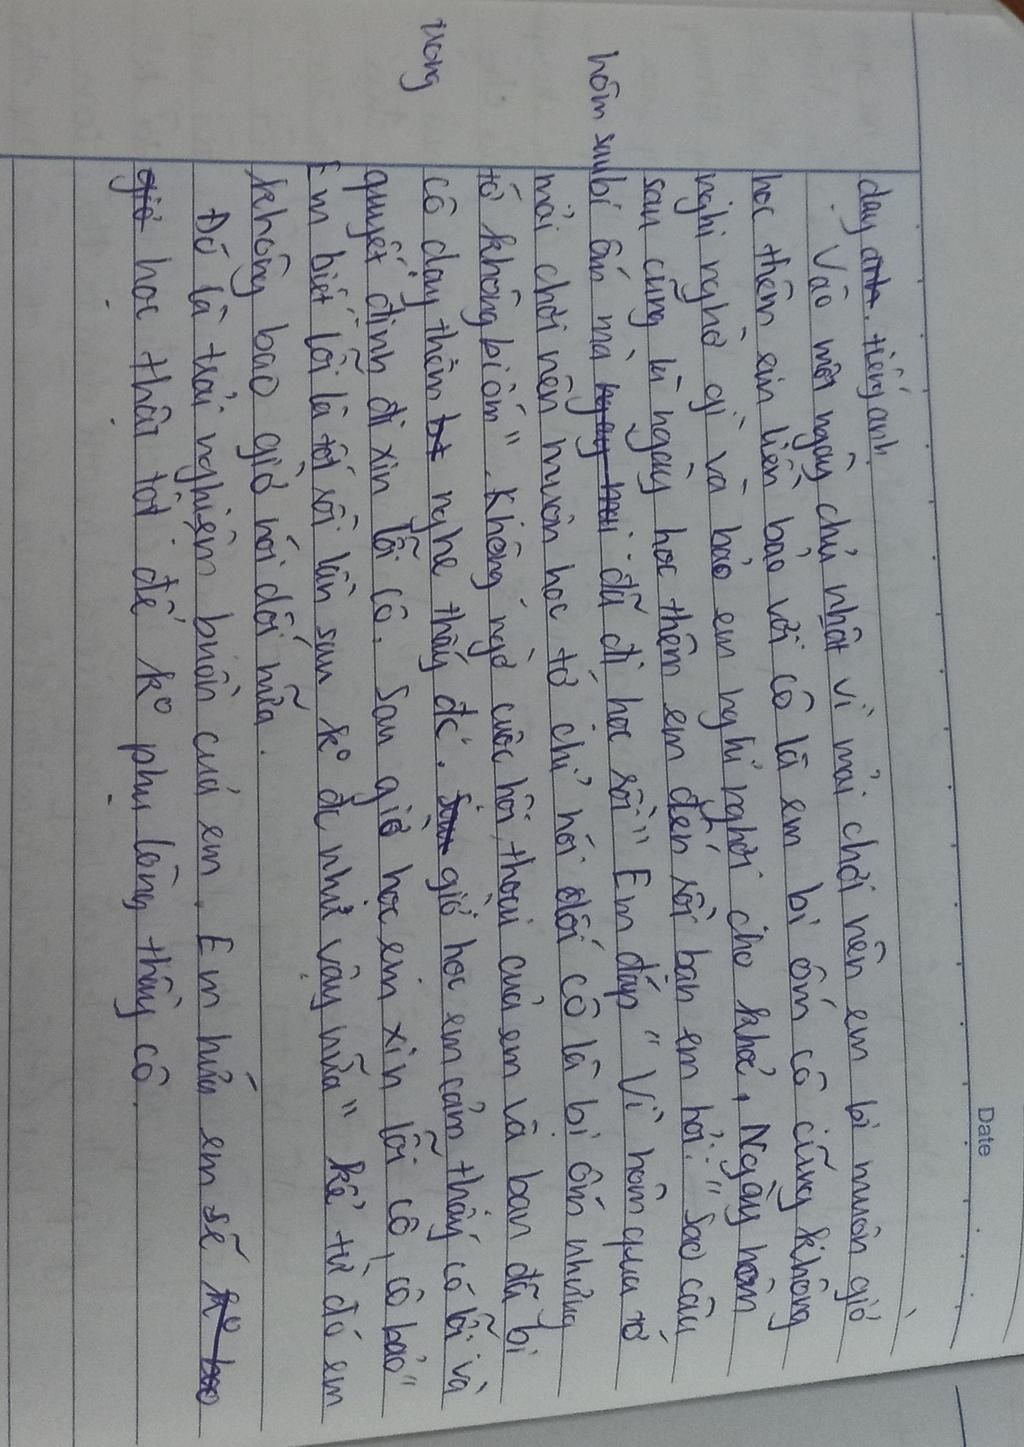 Date
dạy anh. tiếng anh.
Vào một ngày chủ nhật vì mải chơi nên em bị muộn giờ
học thêm em liền bảo với cô là em bị ốm cô cũng không
nghi nghờ gì và bảo em nghỉ nghơi cho khỏe, Ngày hôm
sau cũng là ngày học thêm em đến rồi bạn em hỏi: "sao cậu
hôm sau bị ốm mà ngay hai đã đi học rồi" Em đáp "Vì hôm qua tớ
mải chơi nên muộn học tớ chỉ nói dối cô là bị ốm nhưng
tớ không bị ốm". Không ngờ cuộc hội thoại của em và bạn đã bị
cô dạy thêm bt nghe thấy đc. Sau trong giờ học em cảm thấy có lỗi và
quyết định đi xin lỗi cô. Sau giờ học em xin lỗi cô, cô bảo "
Em biết lỗi là tốt rồi lần sau ko đc như vậy nữa" kể từ đó em
không bao giờ nói dối nữa.
Đó là trải nghiệm buồn của em. Em hứa em sẽ ko bao
giờ học thật tốt để ko phụ lòng thầy cô.